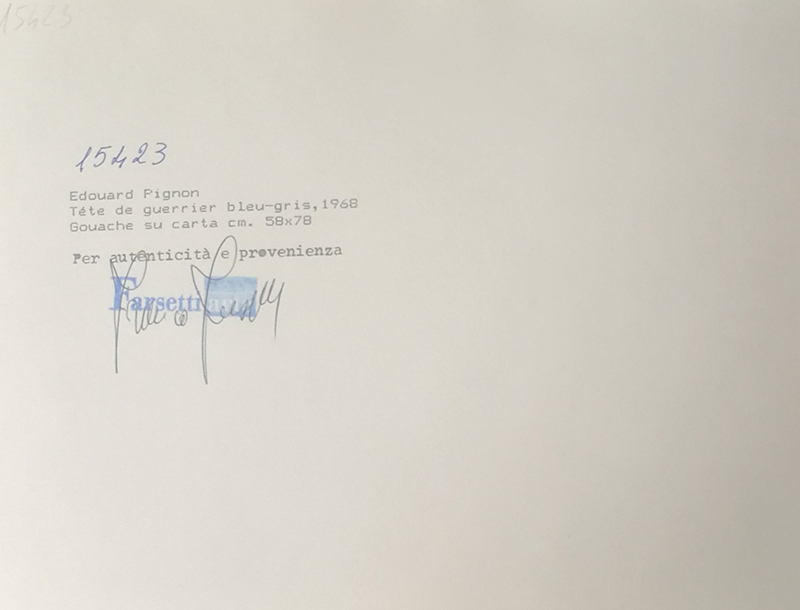 15423
15423
Edouard Pignon
Téte de guerrier bleu-gris,1968
Gouache su carta cm. 58x78
Per autenticità e provenienza
Farsetti